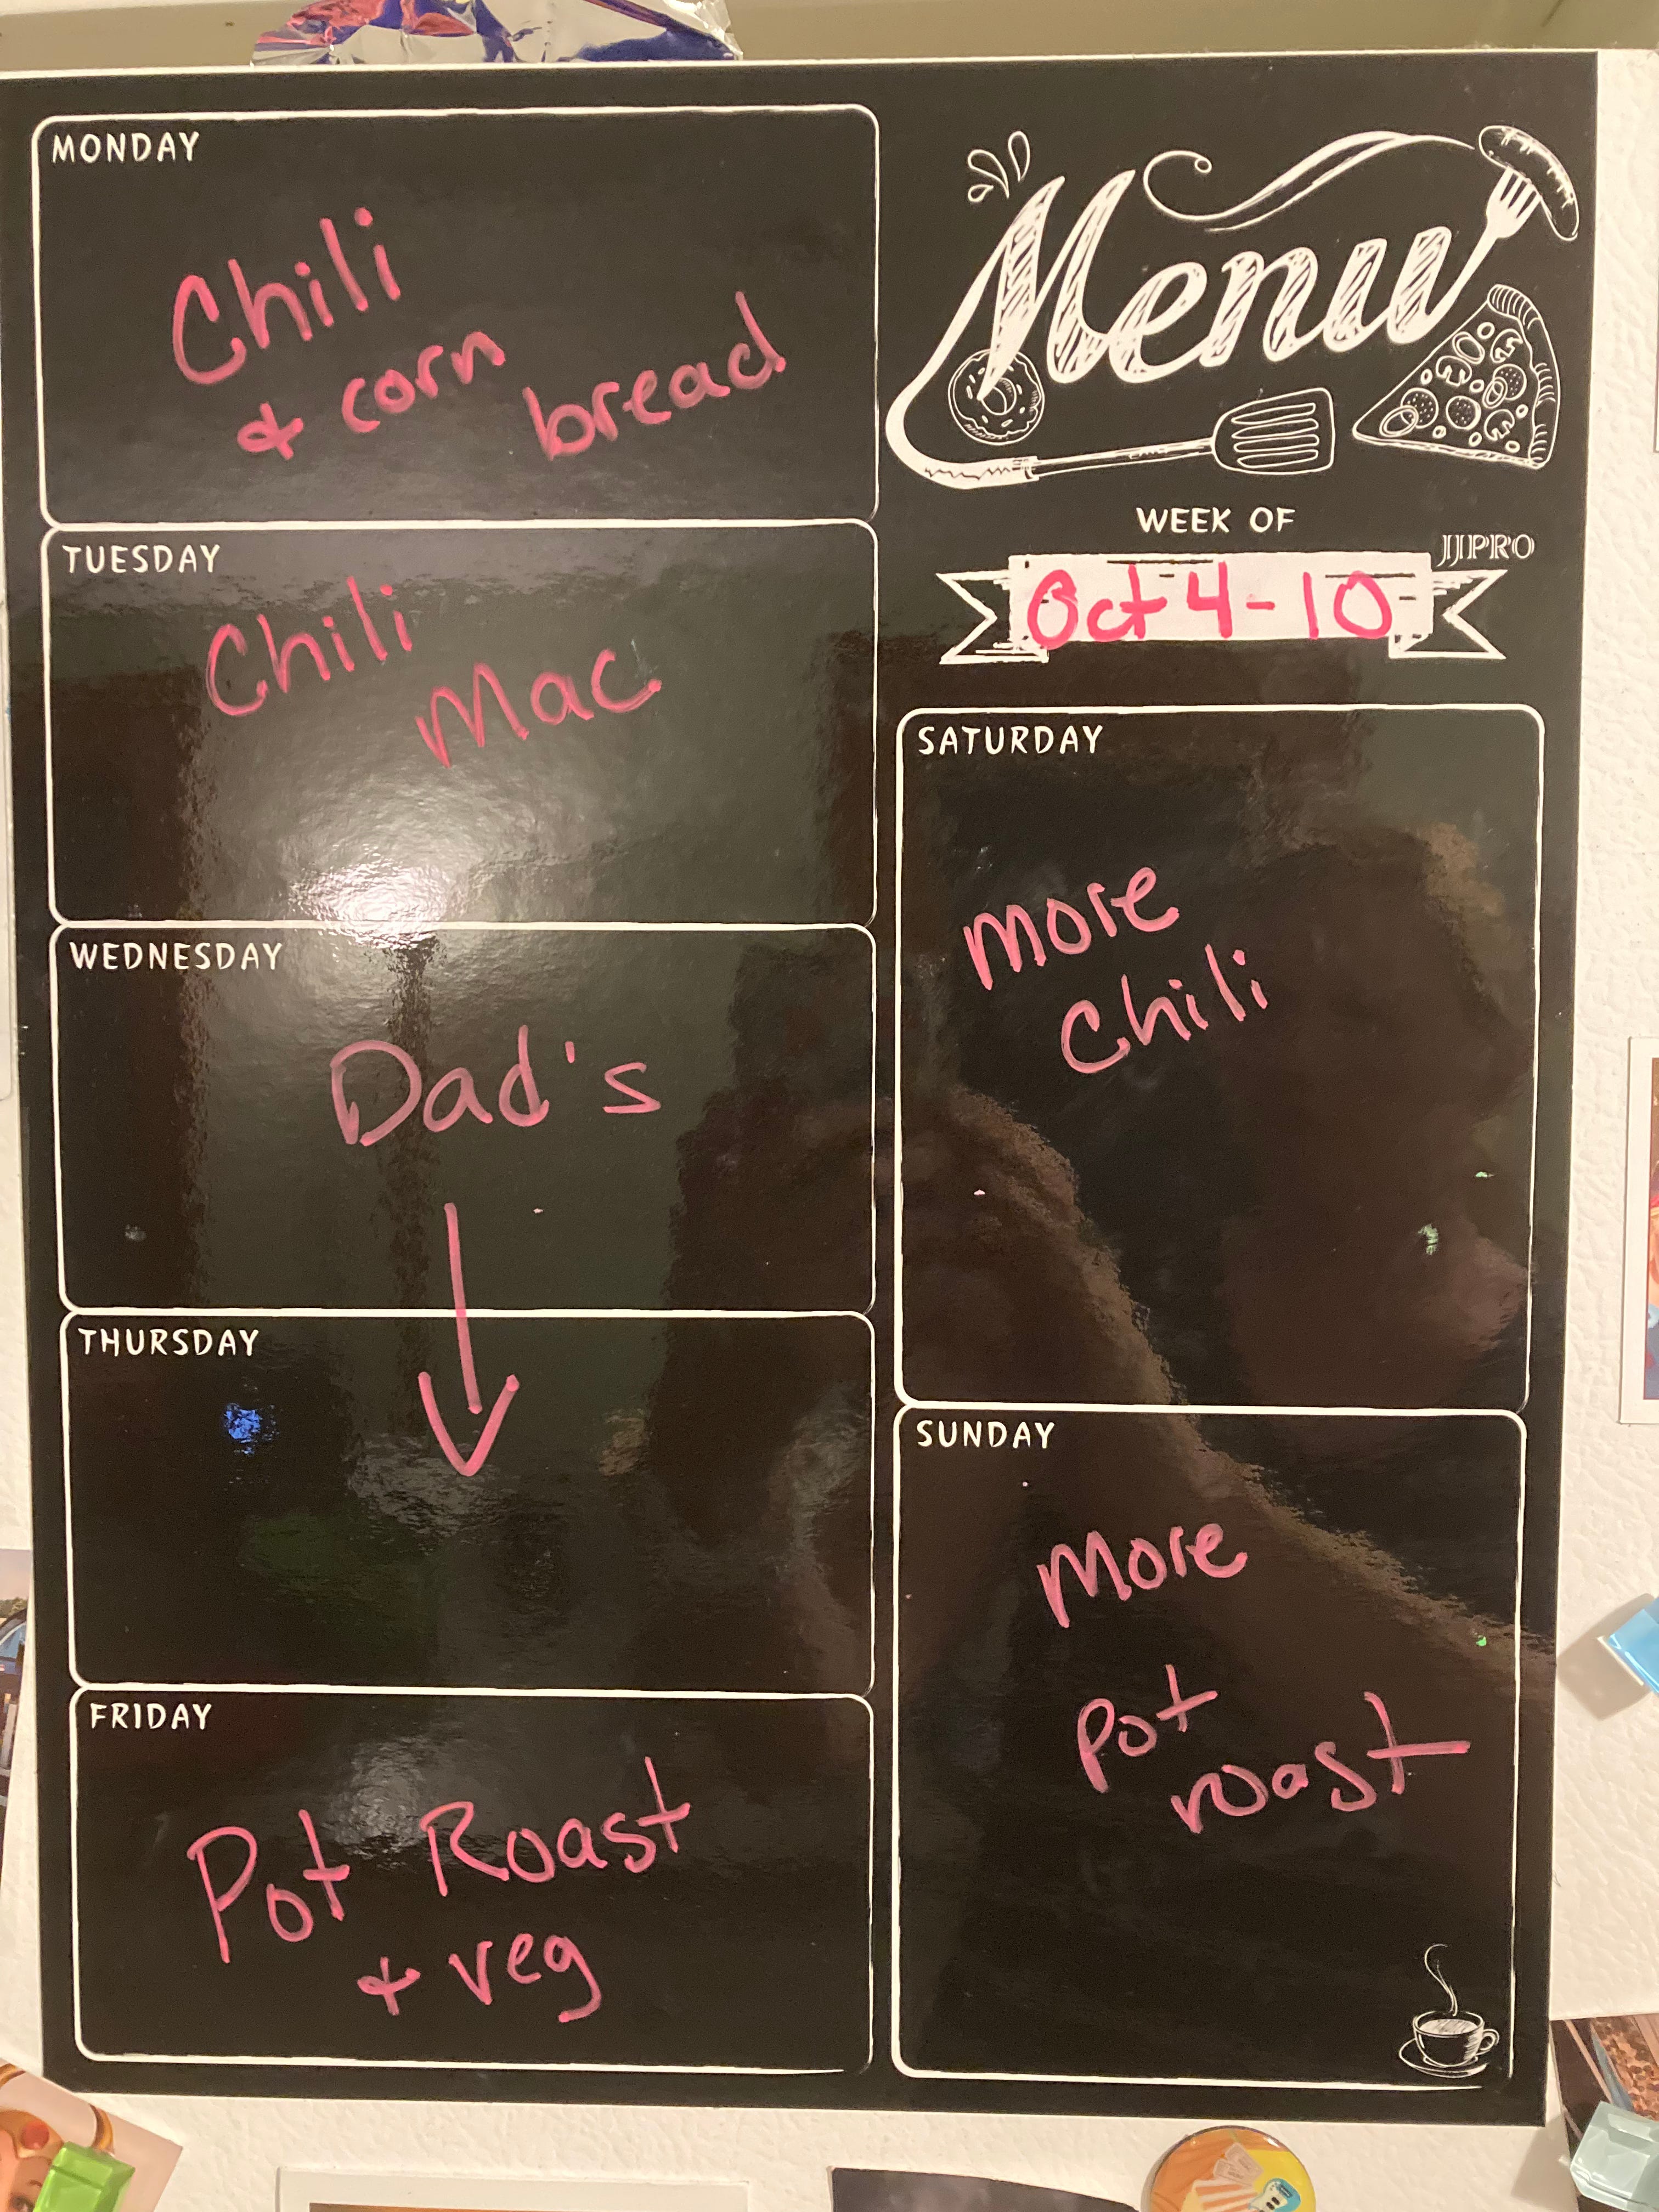 MONDAY
Chili
& corn bread
TUESDAY
Chili
Mac
WEDNESDAY
Dad's
THURSDAY
FRIDAY
Pot Roast
& veg
Menu
WEEK OF
JJPRO
Oct 4-10
SATURDAY
more
Chili
SUNDAY
More
Pot
roast